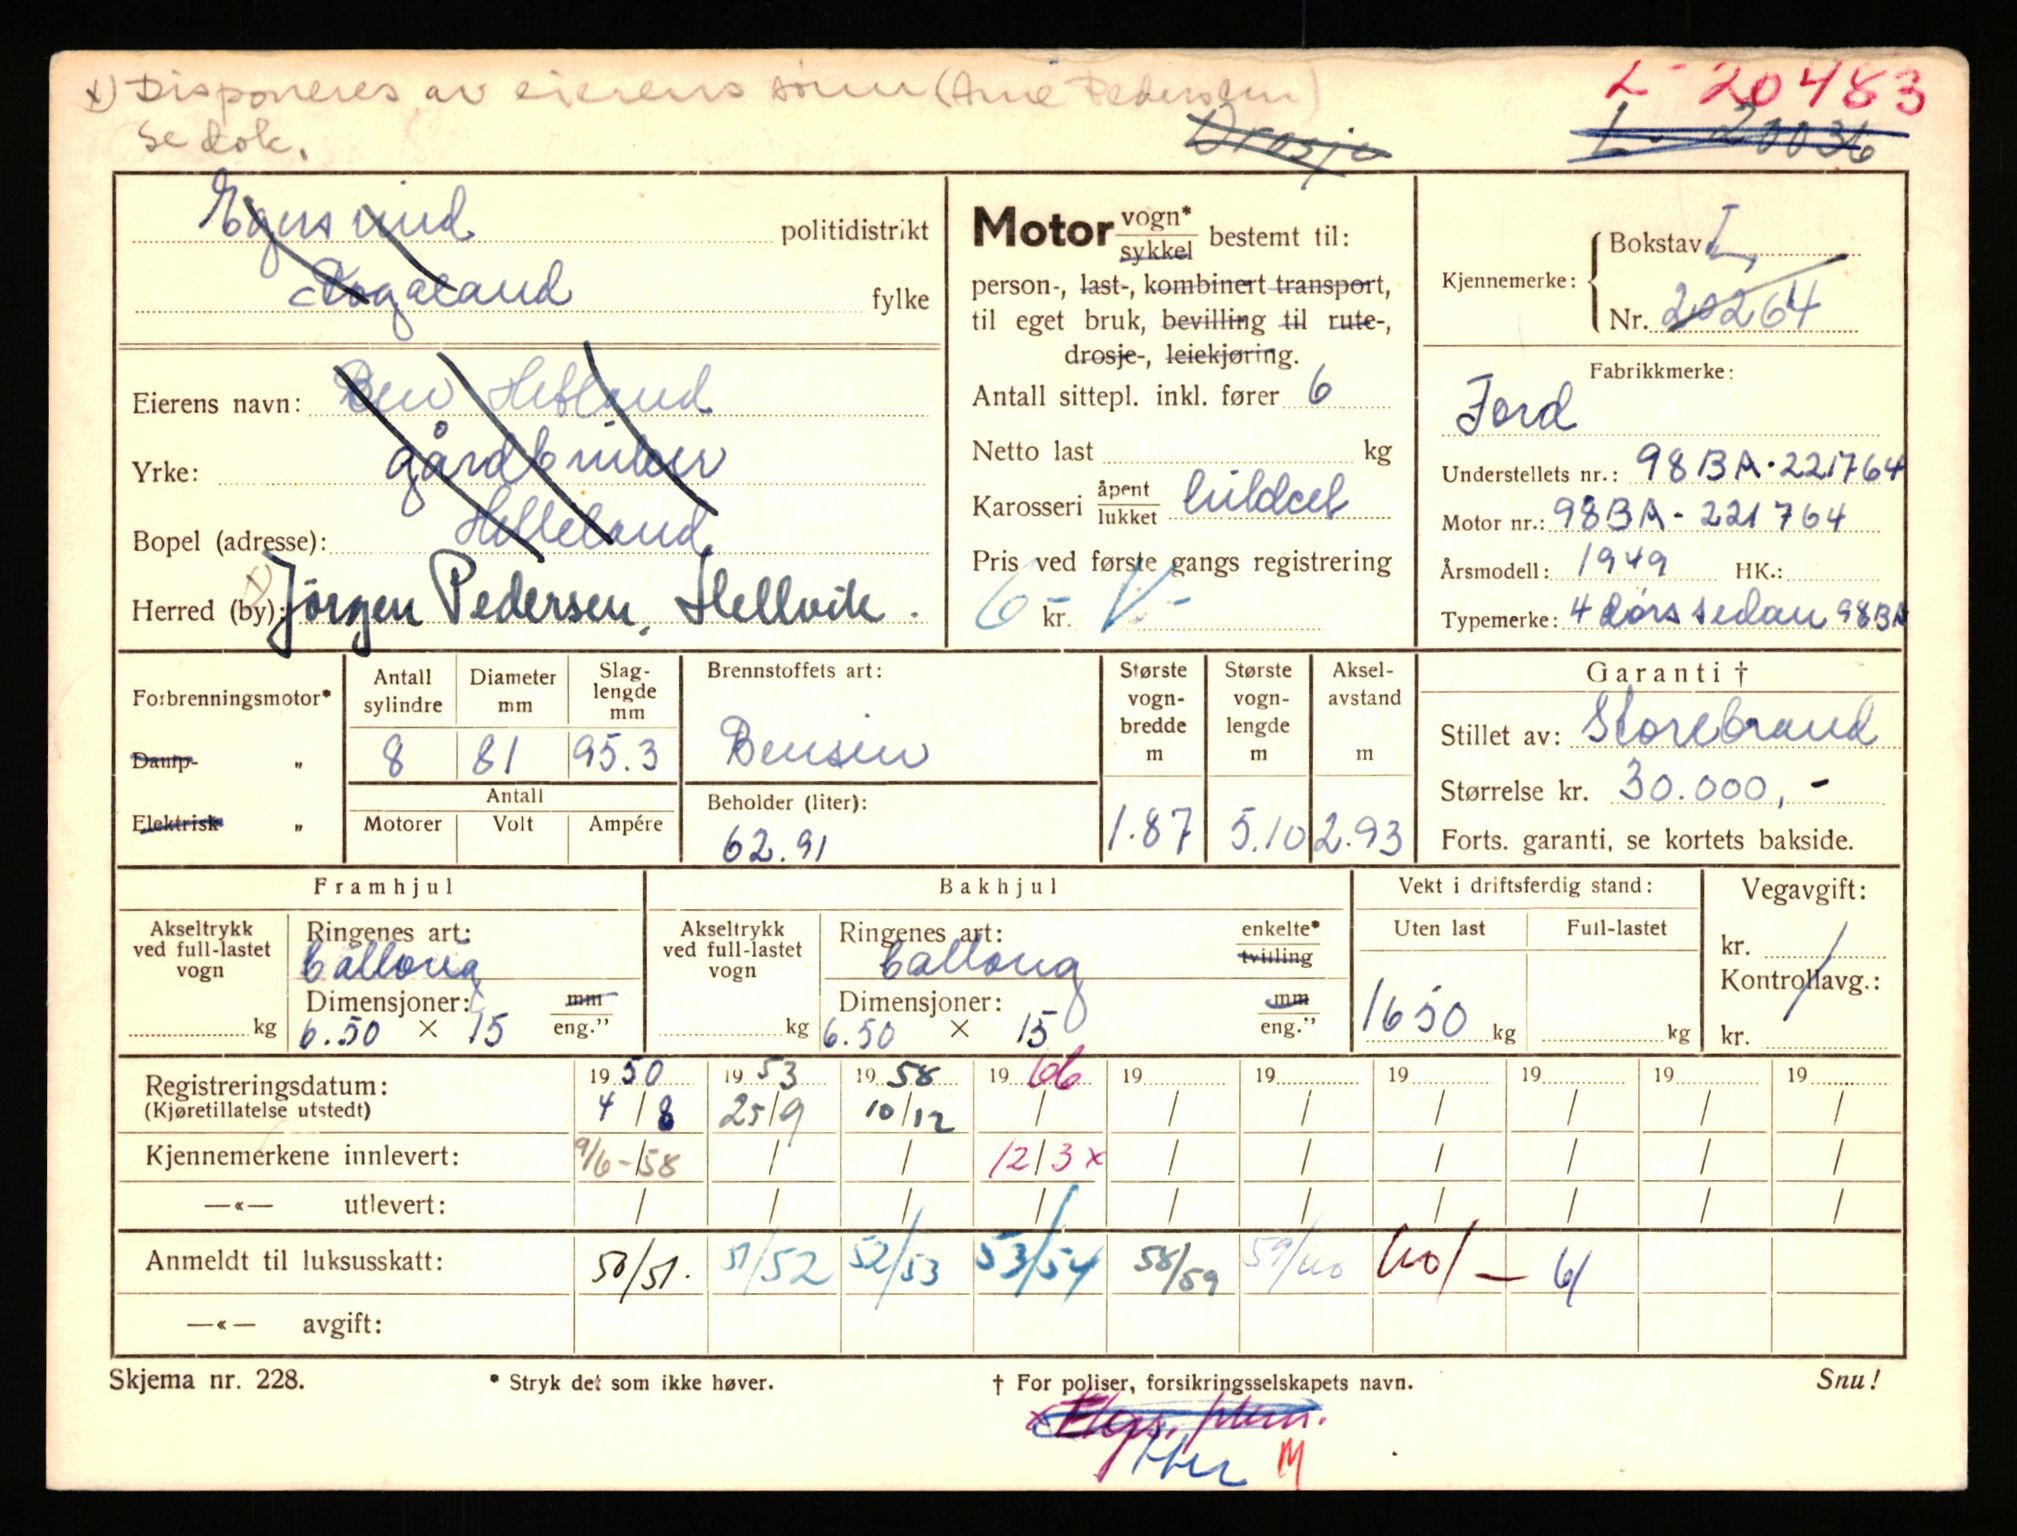 x) Disponeres av eierens sønn (Arne Pedersen)
Se dok.
Drosje
L - 20483
L - 20036
Egersund politidistrikt
Rogaland fylke
Eierens navn: Ben Hetland
Yrke: gårdbruker
Bopel (adresse): Helleland
Herred (by): x) Jörgen Pedersen, Hellvik.
Motor vogn* sykkel bestemt til:
person-, last-, kombinert transport,
til eget bruk, bevilling til rute-,
drosje-, leiekjøring.
Antall sittepl. inkl. fører 6
Netto last kg
Karosseri åpent lukket lukket
Pris ved første gangs registrering
kr.
Kjennemerke: Bokstav L
Nr. 20264
Fabrikkmerke:
Ford
Understellets nr.: 98BA-221764
Motor nr.: 98BA-221764
Årsmodell: 1949 HK.:
Typemerke: 4 dørs sedan 98BA
Forbrenningsmotor*
Damp- „
Elektrisk „
Antall sylindre Diameter mm Slag-lengde mm
8 81 95.3
Antall
Motorer Volt Ampére
Brennstoffets art:
Bensin
Beholder (liter):
62.91
Største vogn-bredde m
1.87
Største vogn-lengde m
5.10
Aksel-avstand m
2.93
Garanti †
Stillet av: Storebrand
Størrelse kr. 30.000,-
Forts. garanti, se kortets bakside.
Framhjul
Akseltrykk ved full-lastet vogn
kg
Ringenes art:
Ballong
Dimensjoner: mm
6.50 × 15 eng.”
Bakhjul
Akseltrykk ved full-lastet vogn
kg
Ringenes art: enkelte* tvilling
Ballong
Dimensjoner: mm
6.50 × 15 eng.”
Vekt i driftsferdig stand:
Uten last Full-lastet
1650 kg kg
Vegavgift:
kr.
Kontrollavg.:
kr.
Registreringsdatum: 1950 1953 1958 1966 19 19 19 19 19 19
(Kjøretillatelse utstedt) 4/8 25/9 10/12 / / / / / / /
Kjennemerkene innlevert: 9/6-58 / / 12/3 x / / / / / /
—«— utlevert: / / / / / / / / / /
Anmeldt til luksusskatt: 50/51. 51/52 52/53 53/54 58/59 59/60 60/- 61
—«— avgift:
Skjema nr. 228.
* Stryk det som ikke høver.
† For poliser, forsikringsselskapets navn.
Snu!
M